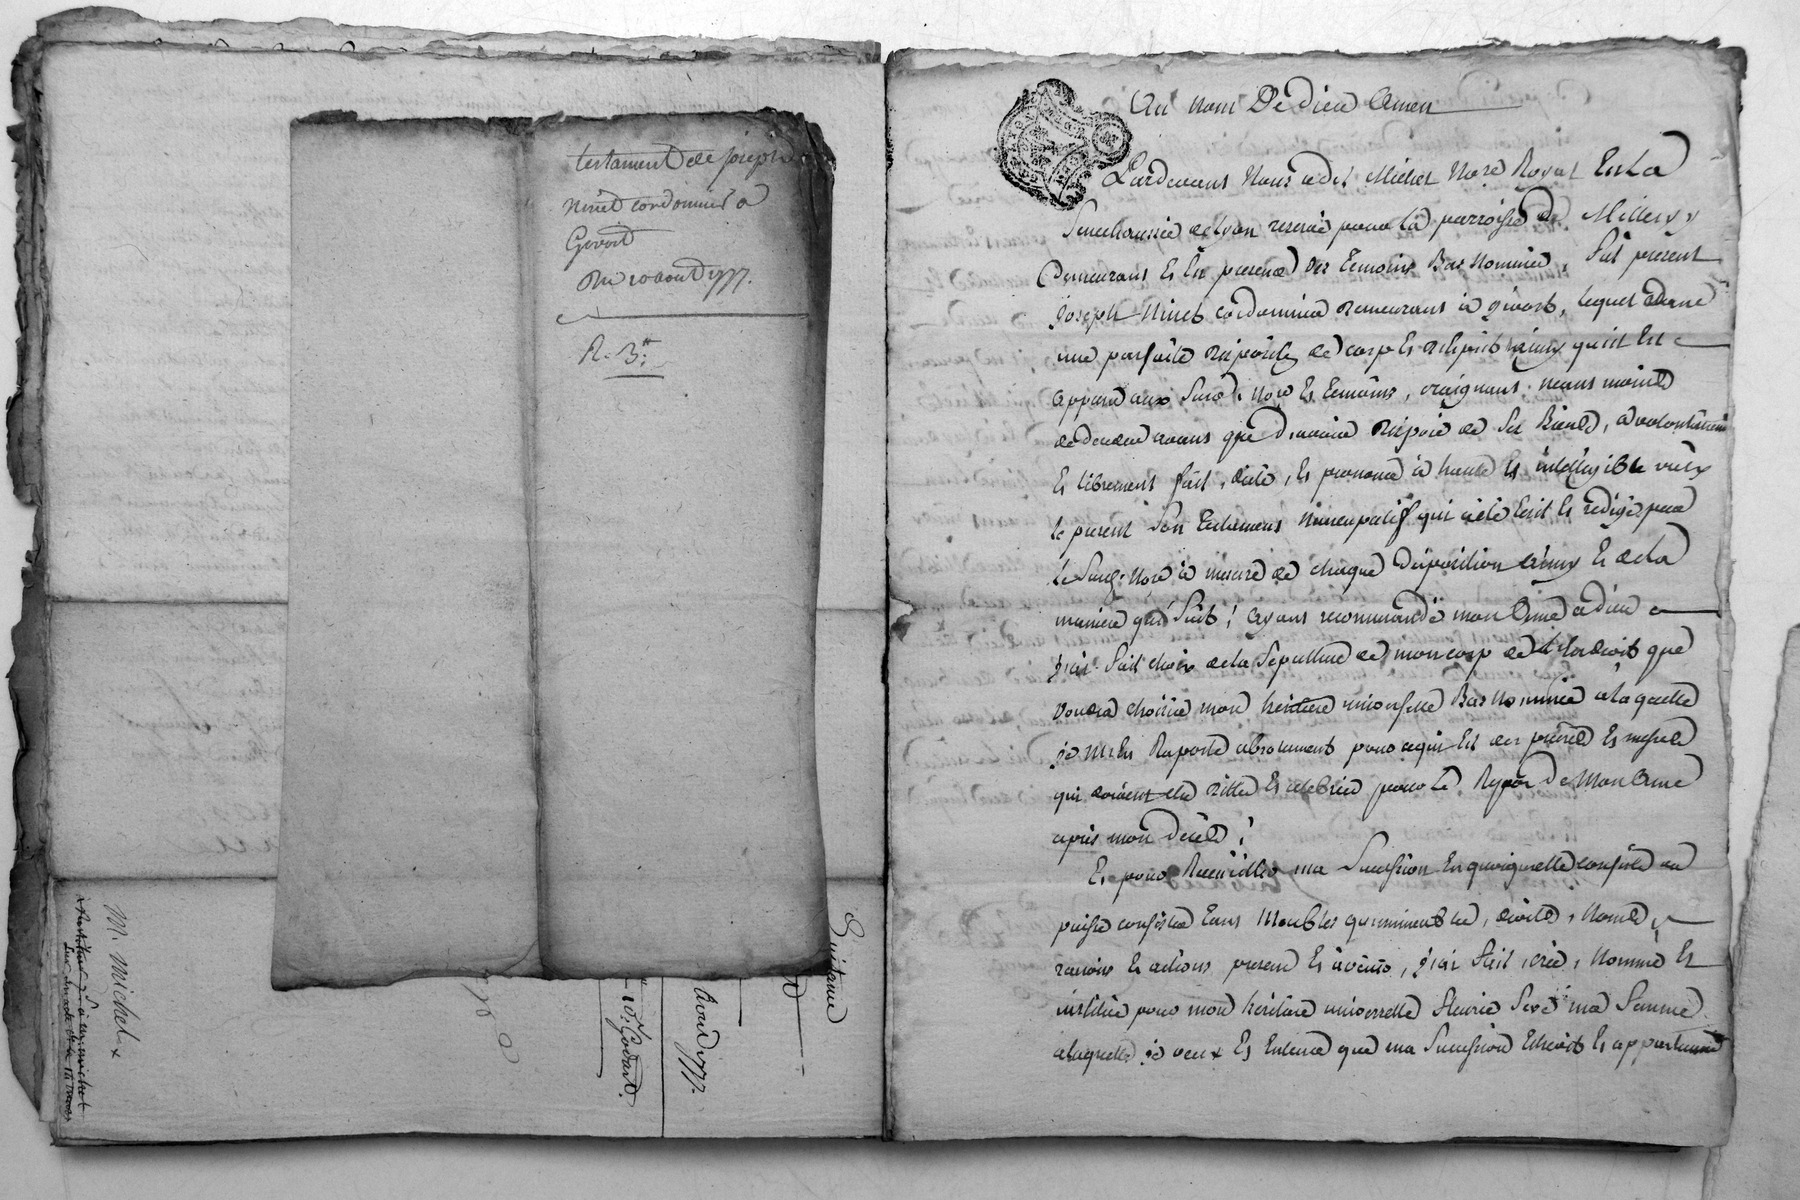 testament de joseph
Ninet cordonnier a
Givort
Du 10 aout 1777.
R. 3.tt
Quitance
Avril 1777.
10.s Godard.
M. Michel
Au nom De dieu Amen
Pardevant Nous Michel Nore Royal En La
Senechaussée de Lyon reservé pour la parroisse de Millery y
Demeurant Et En presence des temoins Bas Nommés, fut present
Joseph Ninet cordonnier demeurant a givort, lequel dans
une parfaite disposition de corp Et d'esprit ainsy qu'il Est
apparu aux Susd. Nore Et temoins, craignant neant moins
de deceder avant que d'avoir disposé de Ses Biens, a volontairement
Et librement fait, dicté, Et prononcé a haute Et intelligible voix
le present Son testament Nuncupatif qui a été Ecrit Et redigé par
le Susd. Nore a mesure de chaque disposition ainsy Et de la
maniere que Suit; Ayant recommandé mon Ame a dieu
j'ai fait choix de la Sepulture de mon corp de l'Endroit que
voudra choisir mon heritiere universelle Bas Nommée a laquelle
je m'En Raporte absolument pour ce qui Est des prieres Et messes
qui doivent etre dittes Et celebrées pour Le Repos De Mon Ame
après mon décès;
Et pour Recueillir ma Succession En quoiquelle consiste ou
puisse consister tant Meubles qu'immeubles, droits, Noms,
raisons Et actions present Et avenir, j'ai fait, créé, Nommé Et
institué pour mon heritiere universelle fleurie Seve ma femme
a laquelle je veux Et Entend que ma Succession Echeoit Et appartienne